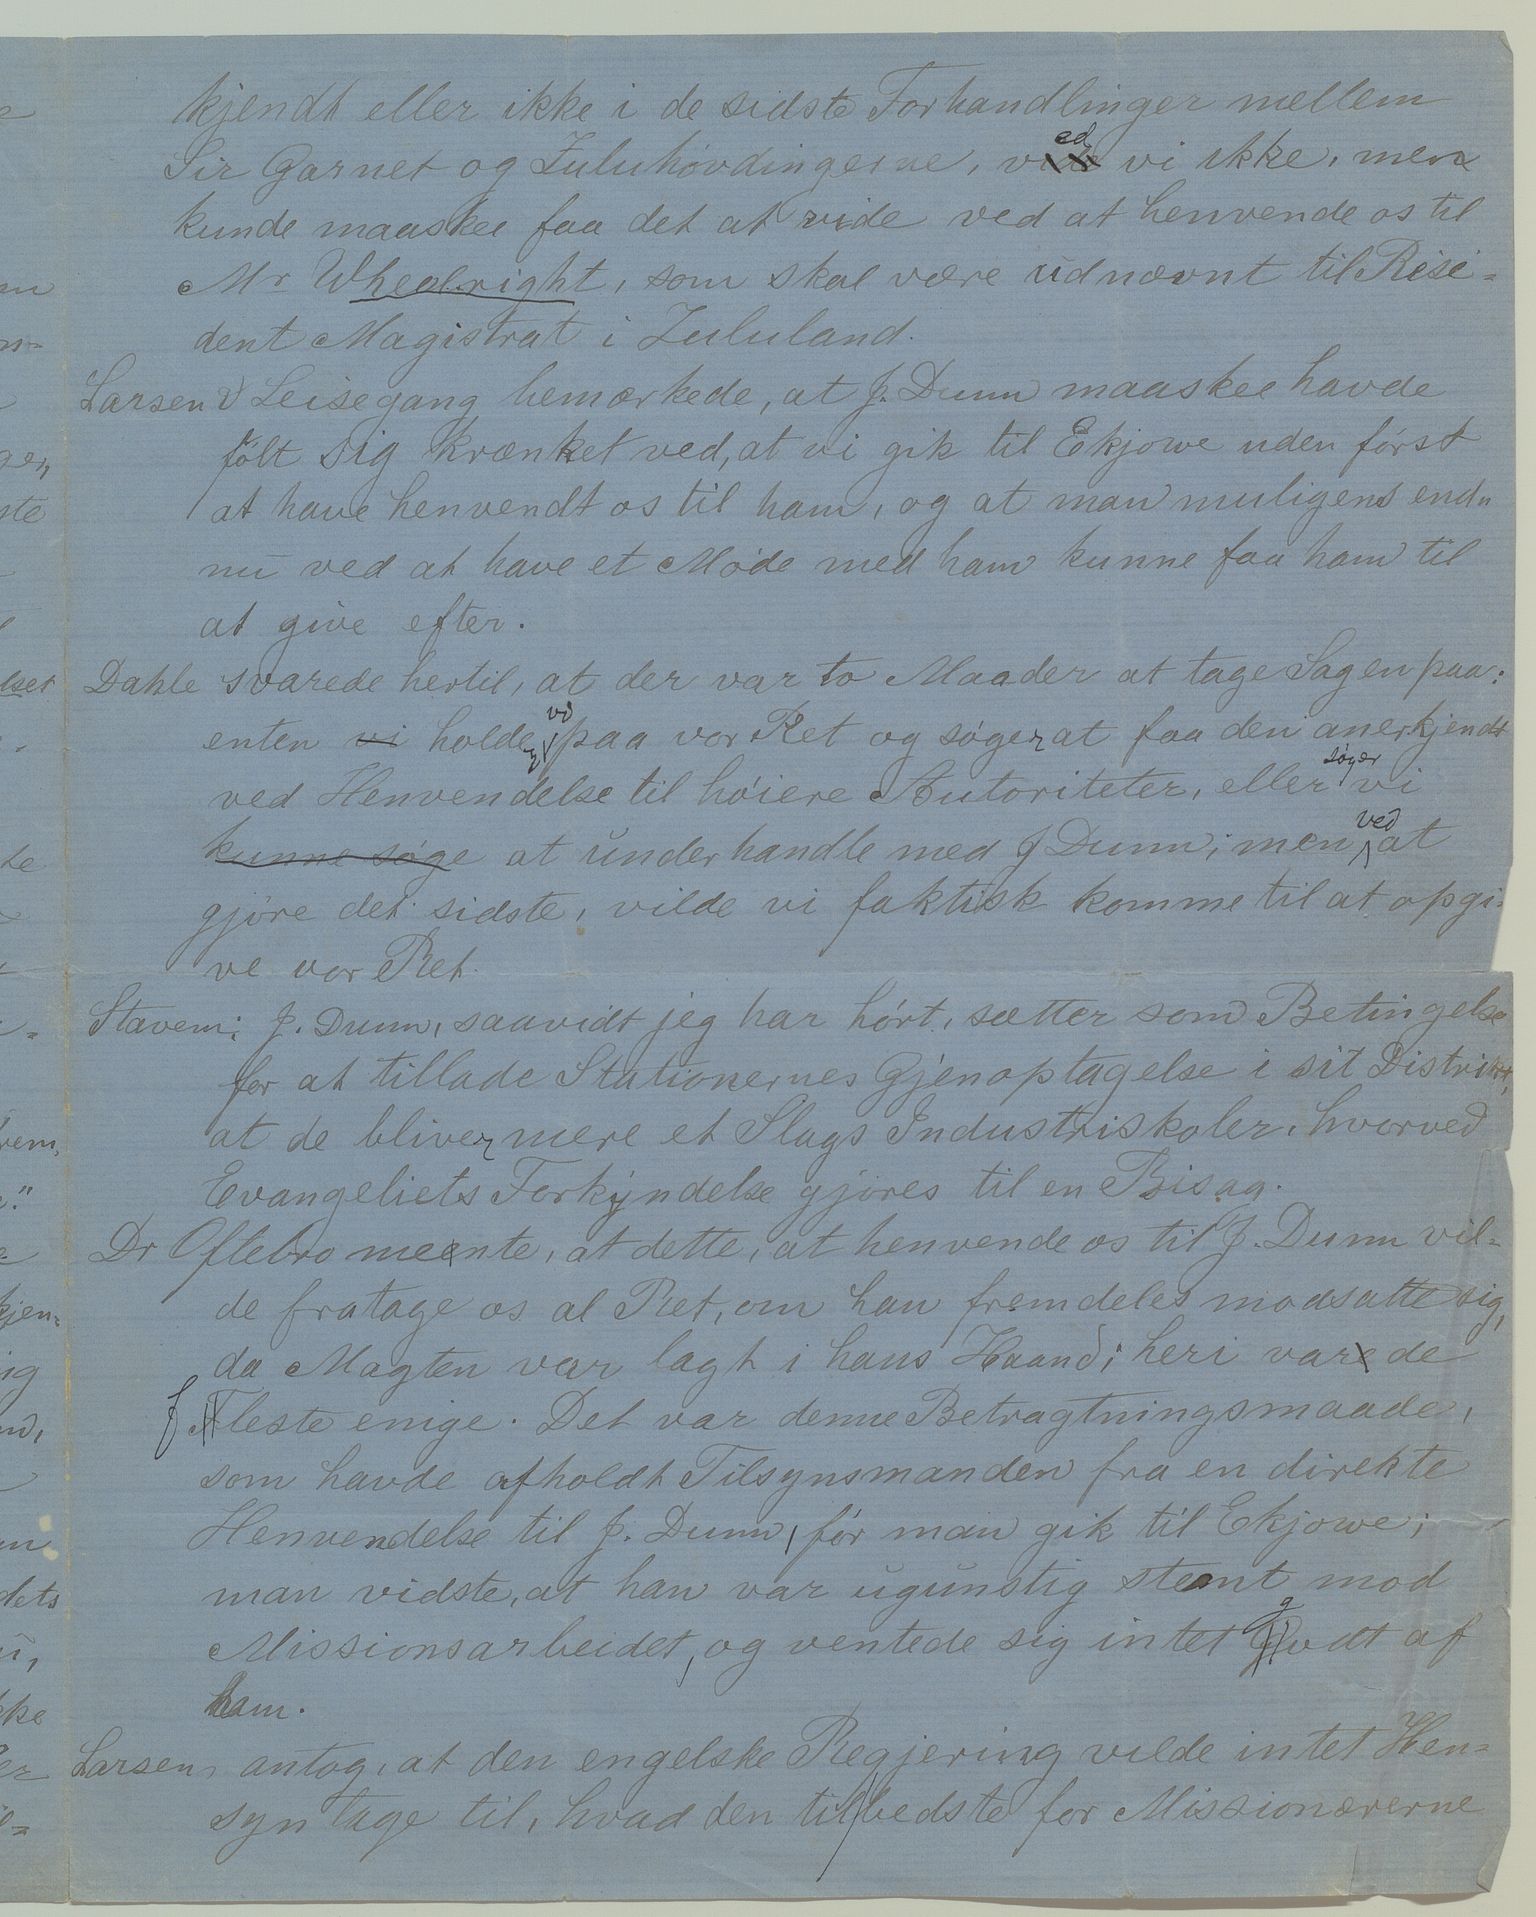 kjendt eller ikke i de sidste Forhandlinger mellem
Sir Garnet og Zuluhøvdingerne, ved vi ikke, men
kunde maaskee faa det at vide ved at henvende os til
Mr Wheelright, som skal være udnævnt til Resi-
dent Magistrat i Zululand.
Larsen & Leisegang bemærkede, at J. Dunn maaskee havde
følt sig krænket ved, at vi gik til Ekjowe uden først
at have henvendt os til ham, og at man muligens end-
nu ved at have et Møde med ham kunne faa ham til
at give efter.
Dahle svarede hertil, at der var to Maader at tage Sagen paa:
enten vi holde vi paa vor Ret og søger at faa den anerkjendt
ved Henvendelse til høiere Autoriteter, eller søger vi
kunne søge at underhandle med J Dunn; men ved at
gjøre det sidste, vilde vi faktisk komme til at opgi-
ve vor Ret.
Stavem: J. Dunn, saavidt jeg har hørt, sætter som Betingelse
for at tillade Stationernes Gjenoptagelse i sit Distrikt,
at de bliver mere et Slags Industriskoler, hvorved
Evangeliets Forkyndelse gjøres til en Bisag.
Dr Oftebro meente, at dette, at henvende os til J. Dunn vil-
de fratage os al Ret, om han fremdeles modsatte sig,
da Magten var lagt i hans Haand; heri var de
fleste enige. Det var denne Betragtningsmaade,
som havde afholdt Tilsynsmanden fra en direkte
Henvendelse til J. Dunn, før man gik til Ekjowe;
man vidste, at han var ugunstig stemt mod
Missionsarbeidet, og ventede sig intet godt af
ham.
Larsen, antog, at den engelske Regjering vilde intet Hen-
syn tage til, hvad den til bedste for Missionærerne